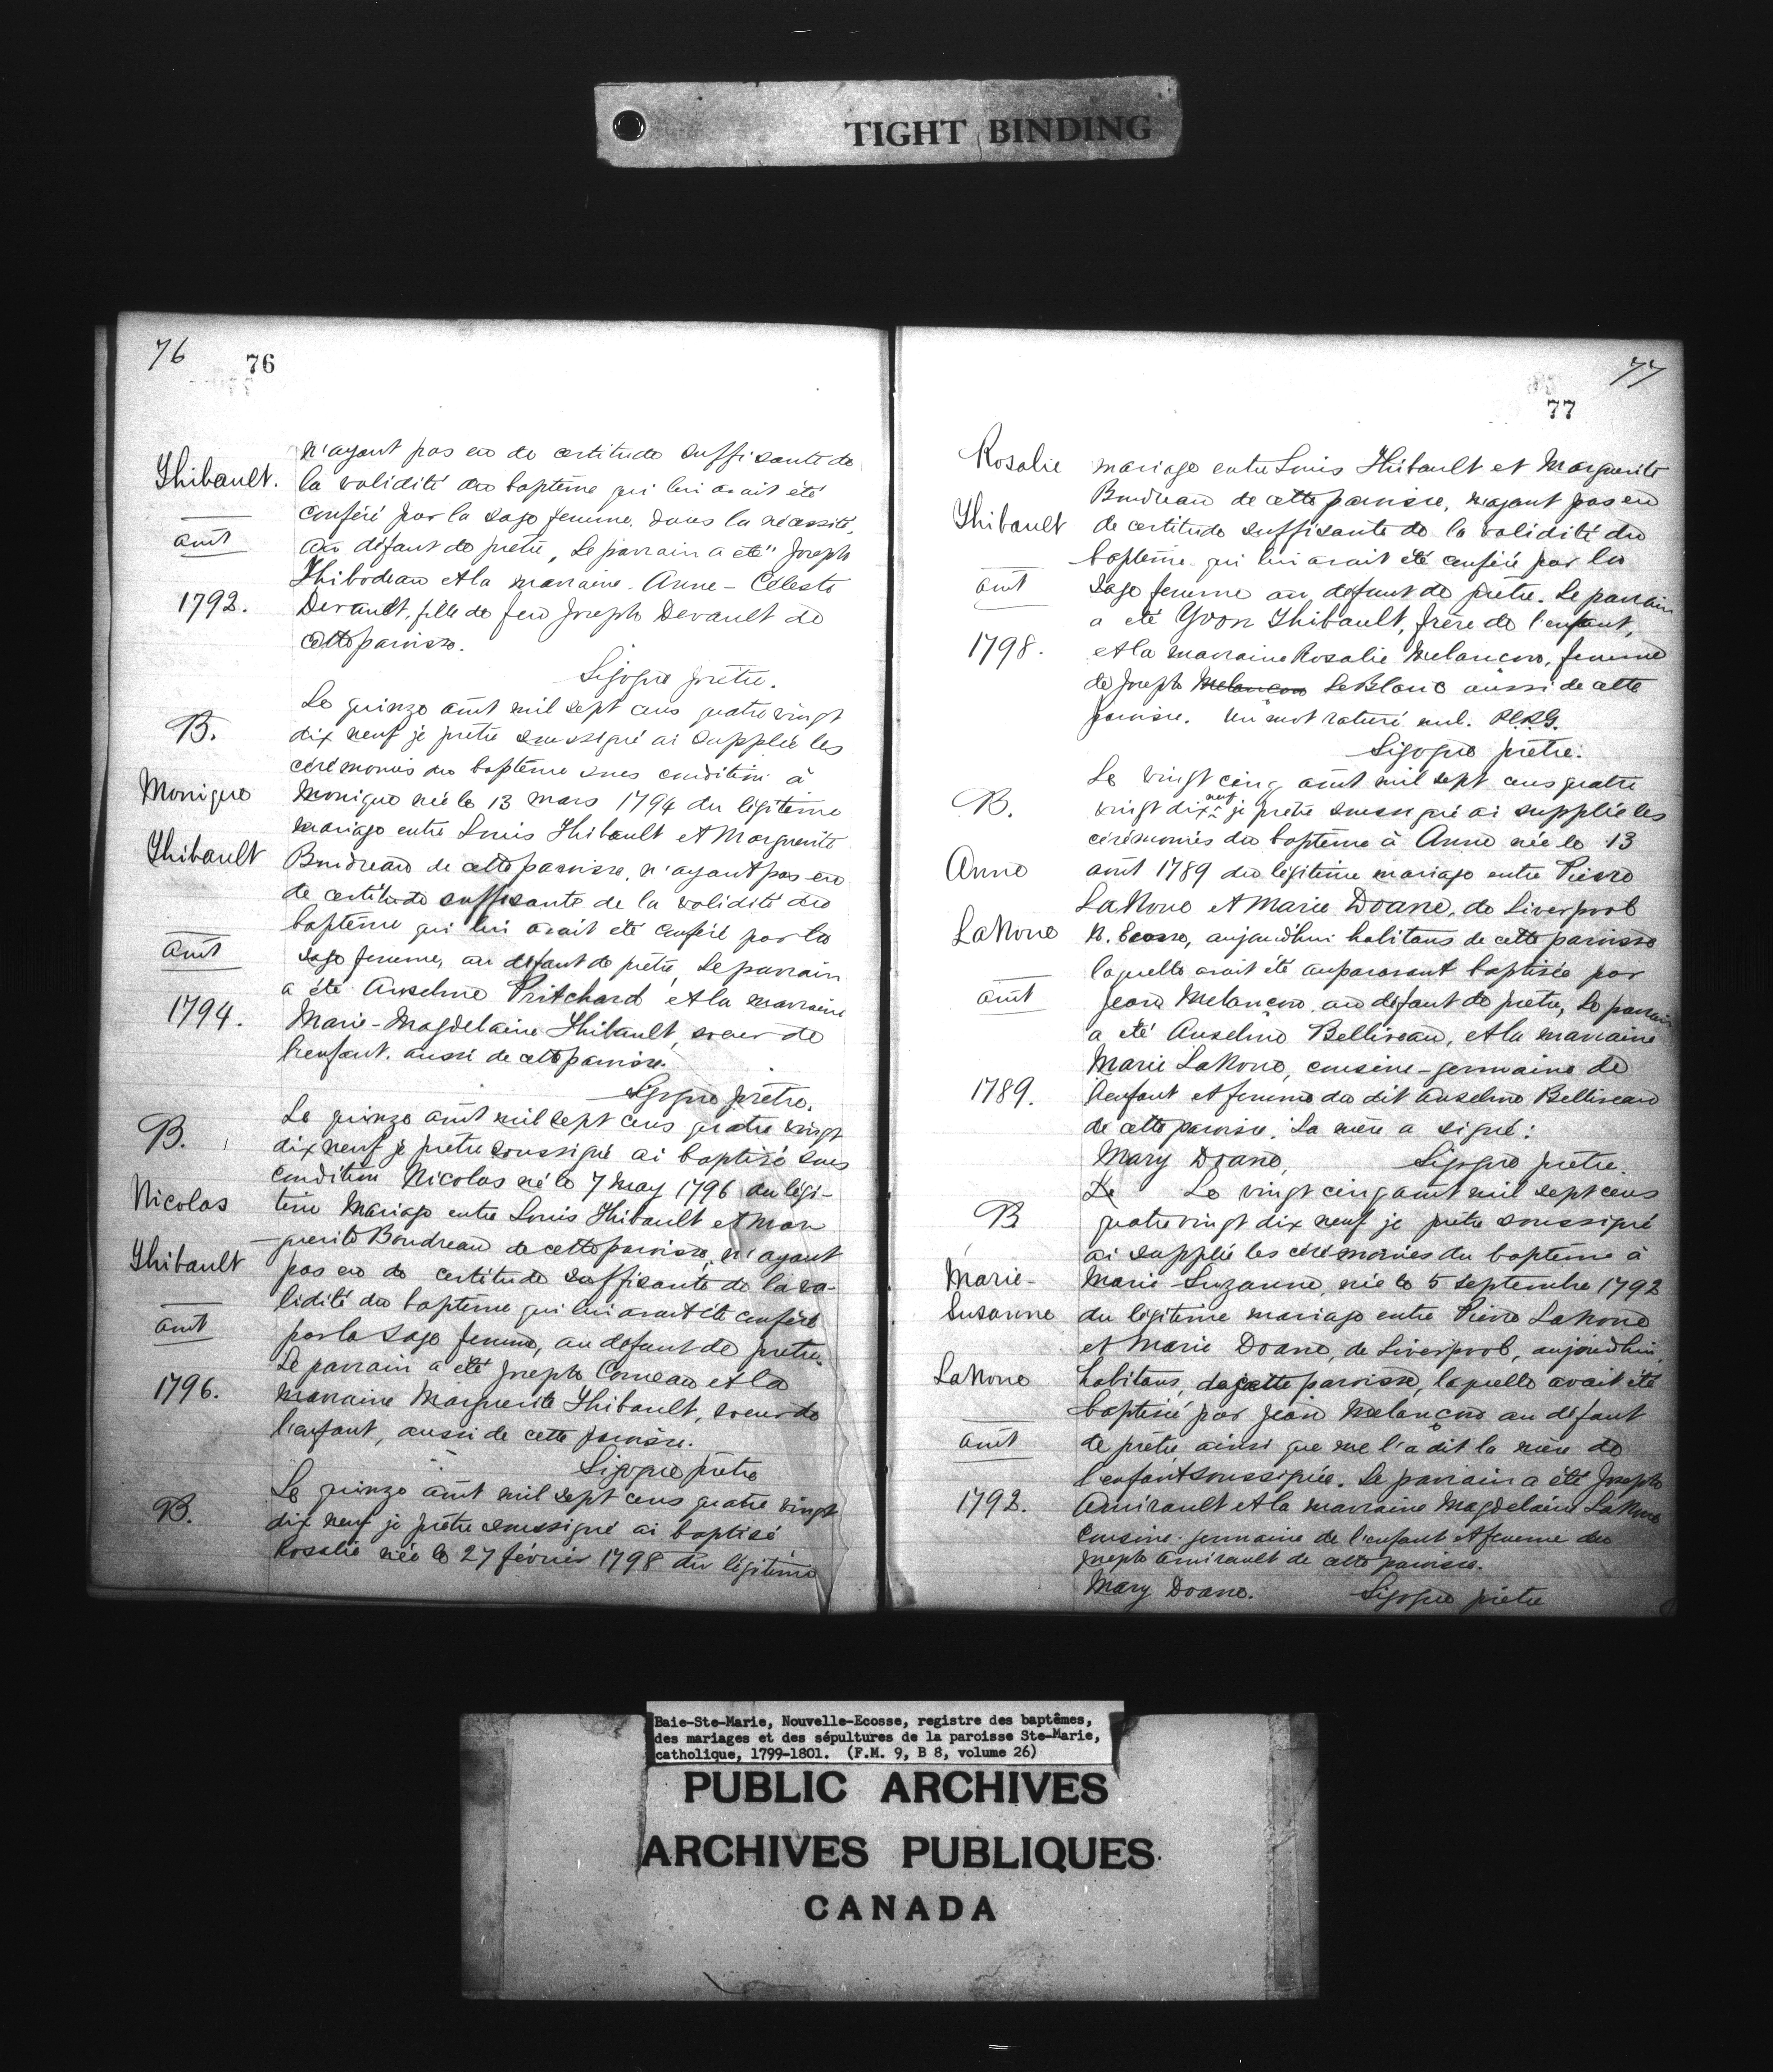 TIGHT BINDING
76
76
Thibault.
août
1792.
n'ayant pas eu de certitude suffisante de
la validité du baptême qui lui avait été
conféré par la sage femme, dans la nécessité,
au défaut de prêtre, Le parrain a été Joseph
Thibodeau et la marraine Anne-Céleste
Devault, fille de feu Joseph Devault de
cette paroisse.
Sigogne prêtre.
B.
Monique
Thibault
août
1794.
Le quinze août mil sept cens quatre vingt
dix neuf je prêtre soussigné ai supplée les
cérémonies du baptême sous condition à
Monique née le 13 mars 1794 du légitime
mariage entre Louis Thibault et Marguerite
Boudreau de cette paroisse, n'ayant pas eu
de certitude suffisante de la validité du
baptême qui lui avait été conféré par la
sage femme, au défaut de prêtre, Le parrain
a été Anselme Pritchard et la marraine
Marie-Magdelaine Thibault, soeur de
l'enfant, aussi de cette paroisse.
Sigogne prêtre.
B.
Nicolas
Thibault
août
1796.
Le quinze août mil sept cens quatre vingt
dix neuf je prêtre soussigné ai baptisé sous
condition Nicolas né le 7 may 1796 du légi-
time Mariage entre Louis Thibault et Mar
guerite Boudreau de cette paroisse, n'ayant
pas eu de certitude suffisante de la va-
lidité du baptême qui lui avait été conféré
par la sage femme, au defaut de prêtre.
Le parrain a été Joseph Comeau et la
marraine Marguerite Thibault, soeur de
l'enfant, aussi de cette paroisse.
Sigogne prêtre
B.
Le quinze août mil sept cens quatre vingt
dix neuf je prêtre soussigné ai baptisé
Rosalie née le 27 février 1798 du légitime
77
77
Rosalie
Thibault
août
1798.
mariage entre Louis Thibault et Marguerite
Boudreau de cette paroisse, n'ayant pas eu
de certitude suffisante de la validité du
baptême qui lui avait été conféré par la
sage femme au defaut de prêtre. Le parrain
a été Yvon Thibault, frère de l'enfant,
et la marraine Rosalie Melançon, femme
de Joseph Melançon LeBlanc aussi de cette
paroisse. Un mot raturé nul.
Sigogne prêtre.
B.
Anne
LaNoue
août
1789.
Le vingt cinq août mil sept cens quatre
vingt dix neuf je prêtre soussigné ai supplée les
cérémonies du baptême à Anne née le 13
août 1789 du légitime mariage entre Pierre
LaNoue et Marie Doane, de Liverpool
N. Ecosse, aujourd'hui habitans de cette paroisse
laquelle avait été auparavant baptisée par
Jean Melançon au défaut de prêtre, Le parrain
a été Anselme Belliveau, et la marraine
Marie LaNoue, cousine-germaine de
l'enfant et femme du dit Anselme Belliveau
de cette paroisse. La mère a signé:
Mary Doane, Sigogne prêtre.
B
Marie-
Susanne
LaNoue
août
1792.
Le Le vingt cinq août mil sept cens
quatre vingt dix neuf je prêtre soussigné
ai supplée les cérémonies du baptême à
Marie-Suzanne, née le 5 septembre 1792
du légitime mariage entre Pierre LaNoue
et Marie Doane, de Liverpool, aujourdhui
habitans, de cette paroisse, laquelle avait été
baptisée par Jean Melançon au défaut
de prêtre ainsi que me l'a dit la mère de
l'enfant soussignée. Le parrain a été Joseph
Amirault et la marraine Magdelaine LaNoue
Cousine-germaine de l'enfant et femme du
Joseph Amirault de cette paroisse.
Mary Doane. Sigogne prêtre
Baie-Ste-Marie, Nouvelle-Ecosse, registre des baptêmes,
des mariages et des sépultures de la paroisse Ste-Marie,
catholique, 1799-1801. (F.M. 9, B 8, volume 26)
PUBLIC ARCHIVES
ARCHIVES PUBLIQUES
CANADA